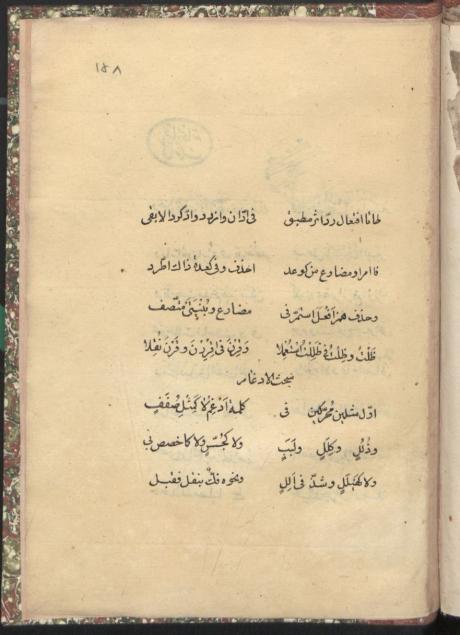 ١٥٨
طا تا افتعال رد اثر مطبق في ادان وازدد وادكر دالا بقى
فا امر او مضارع من كوعد احذف وفي كعدة ذاك اطرد
وحذف همز افعل استمر في مضارع وبنيتى متصف
ظَلْتُ وظِلْتُ في ظَلِلْتُ استعملا وقِرْنَ في اقرِرْن وقَرْنَ نقلا
مبحث الادغام
اول مثلين محركين في كلمة ادغم لا كمثل صُفَفٍ
وذُلُلٍ وكِلَلٍ ولَبَبٍ ولا كجُسَّسٍ ولا كاخصص بي
ولا كهيلل وشذ في الل ونحوه فك بنقل فقبل